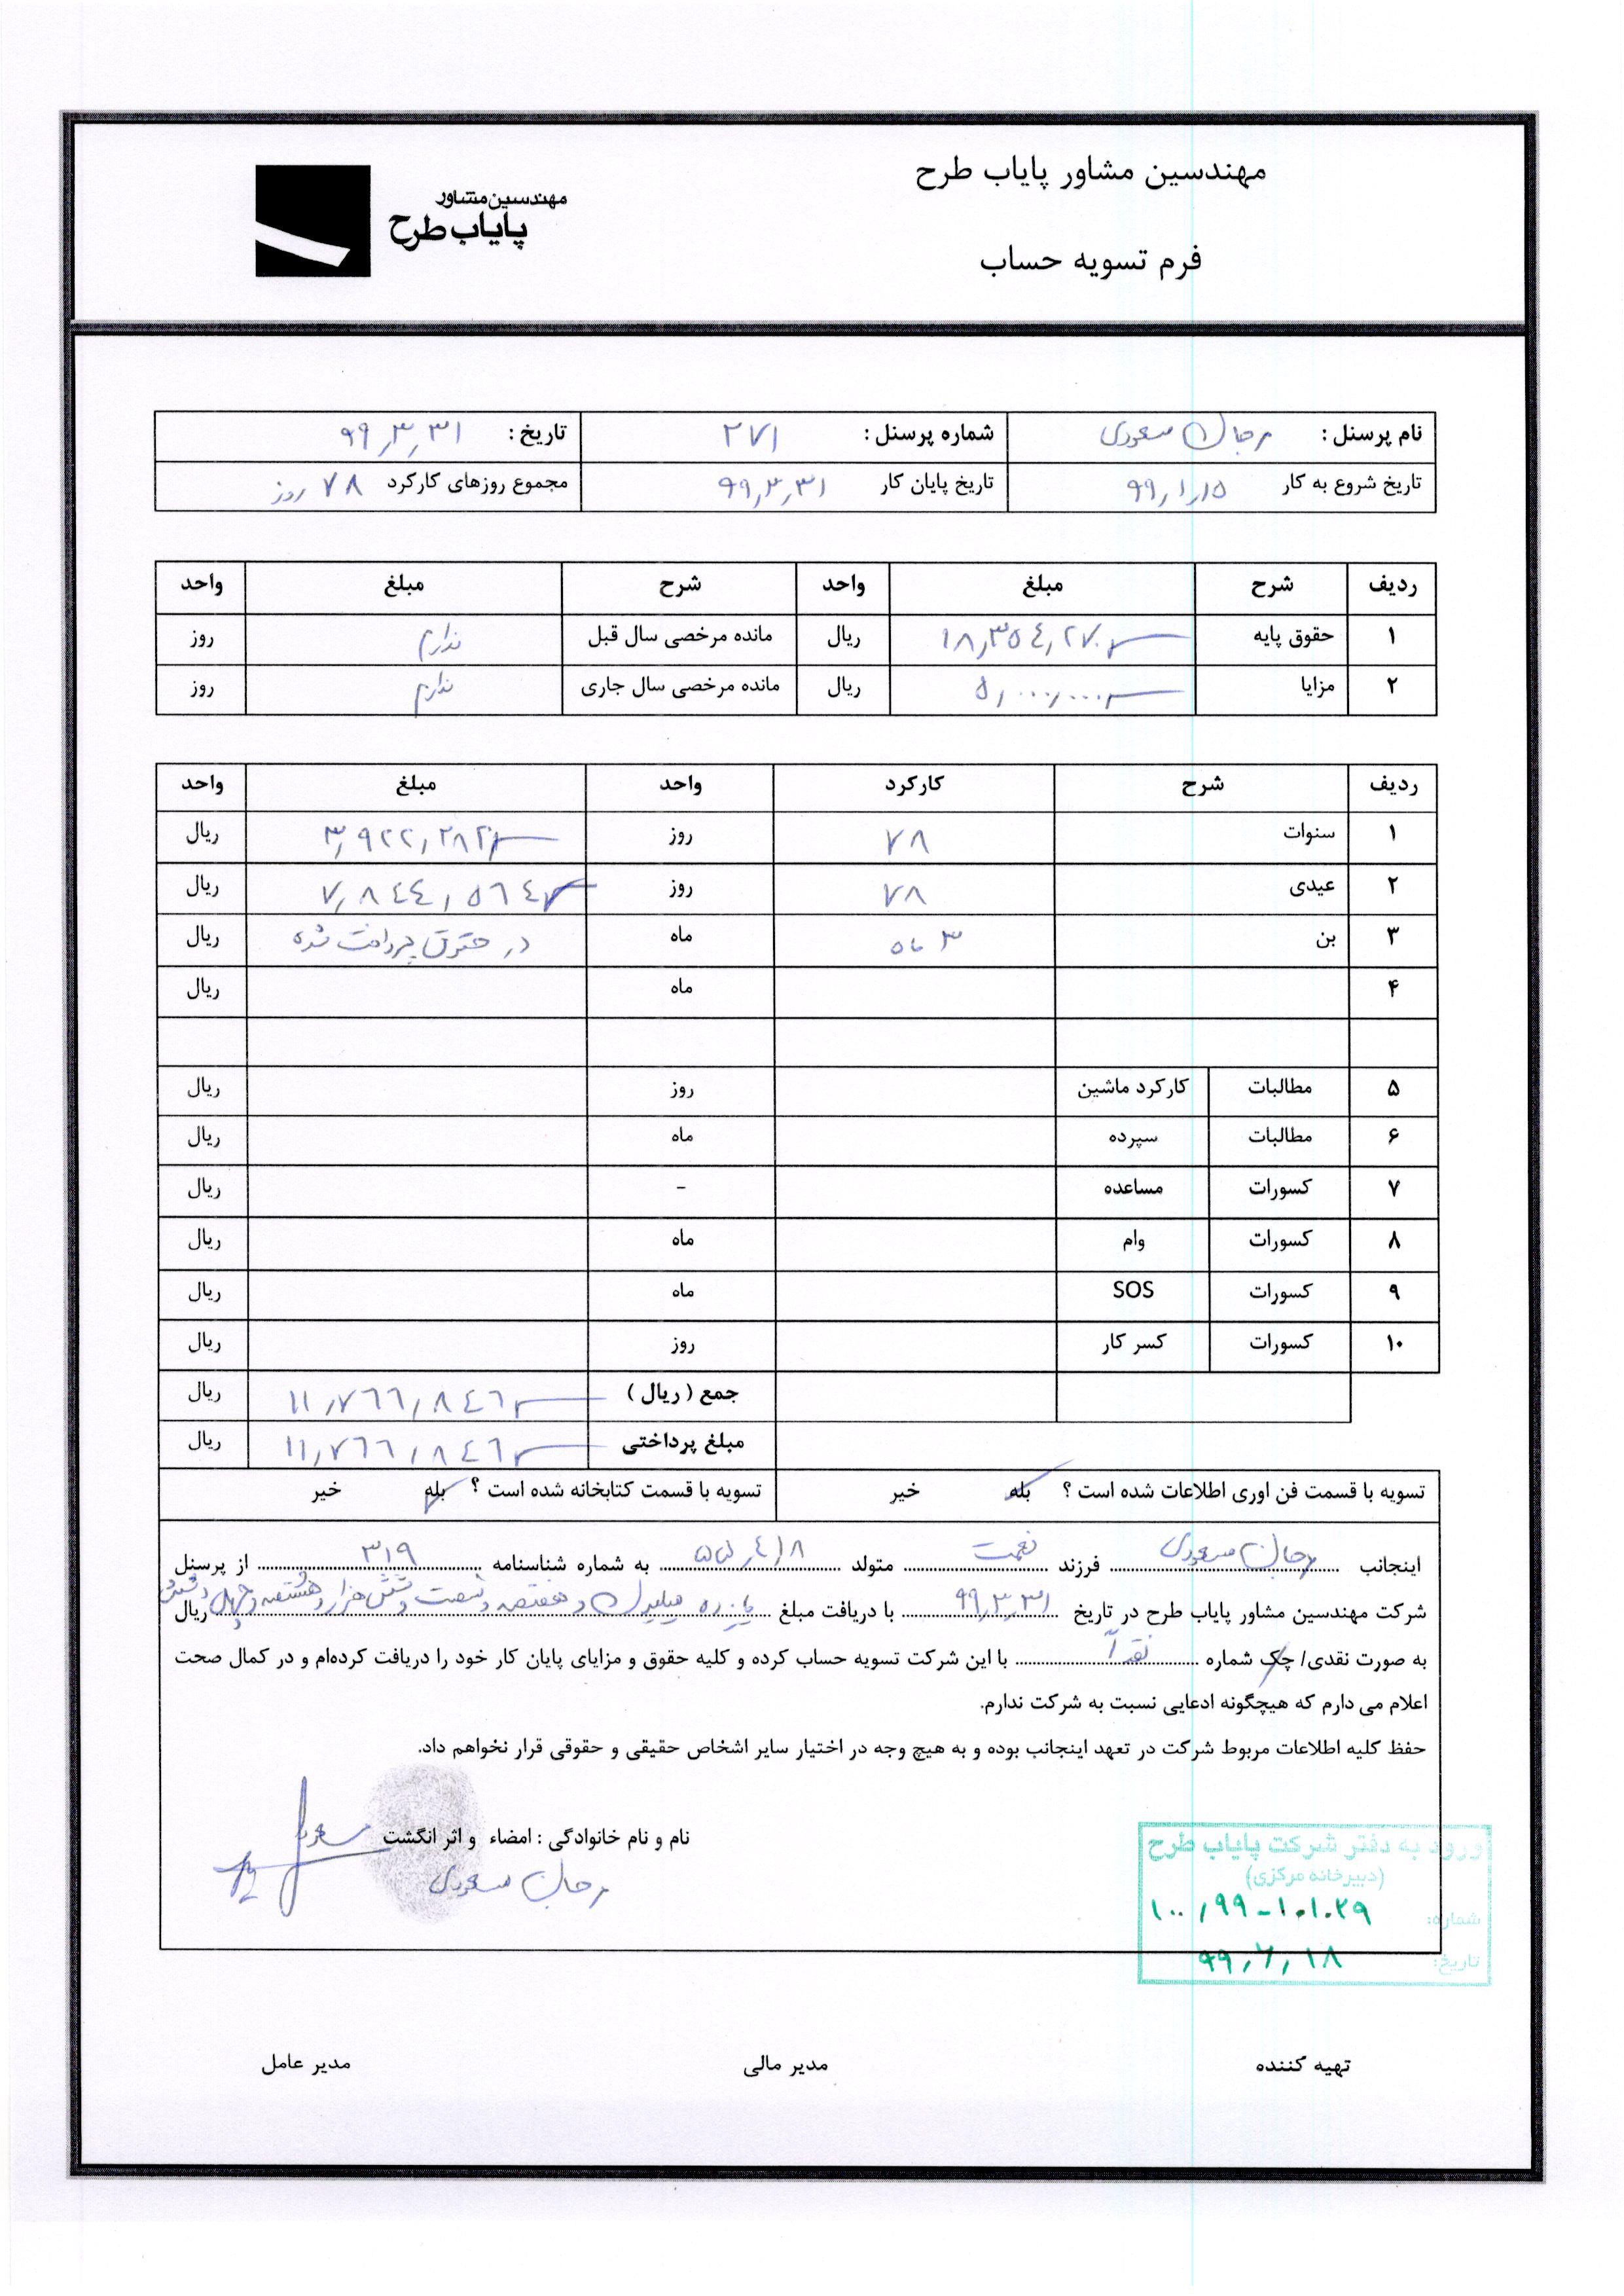 مهندسین مشاور پایاب طرح
مهندسین مشاور
پایاب طرح
فرم تسویه حساب
نام پرسنل : مرجان مسعودی شماره پرسنل : ۲۷۱ تاریخ : ۹۹٫۳٫۳۱
تاریخ شروع به کار ۹۹٫۱٫۱۵ تاریخ پایان کار ۹۹٫۳٫۳۱ مجموع روزهای کارکرد ۷۸ روز
ردیف شرح مبلغ واحد شرح مبلغ واحد
۱ حقوق پایه ۱۸٫۳۵۴٫۲۷۰ ریال مانده مرخصی سال قبل ندارم روز
۲ مزایا ۵٫۰۰۰٫۰۰۰ ریال مانده مرخصی سال جاری ندارم روز
ردیف شرح کارکرد واحد مبلغ واحد
۱ سنوات ۷۸ روز ۳٫۹۲۲٫۲۸۲ ریال
۲ عیدی ۷۸ روز ۷٫۸۴۴٫۵۶۴ ریال
۳ بن ۳ ماه ماه در حقوق پرداخت شده ریال
۴ ماه ریال
۵ مطالبات کارکرد ماشین روز ریال
۶ مطالبات سپرده ماه ریال
۷ کسورات مساعده - ریال
۸ کسورات وام ماه ریال
۹ کسورات SOS ماه ریال
۱۰ کسورات کسر کار روز ریال
جمع ( ریال ) ۱۱٫۷۶۶٫۸۴۶ ریال
مبلغ پرداختی ۱۱٫۷۶۶٫۸۴۶ ریال
تسویه با قسمت فن اوری اطلاعات شده است ؟ بله خیر تسویه با قسمت کتابخانه شده است ؟ بله خیر
اینجانب مرجان مسعودی فرزند نعمت متولد ۵۵٫۴٫۸ به شماره شناسنامه ۳۱۹ از پرسنل
شرکت مهندسین مشاور پایاب طرح در تاریخ ۹۹٫۳٫۳۱ با دریافت مبلغ یازده میلیون و هفتصد و شصت و شش هزار و هشتصد و چهل و شش ریال
به صورت نقدی/ چک شماره نقداً با این شرکت تسویه حساب کرده و کلیه حقوق و مزایای پایان کار خود را دریافت کرده‌ام و در کمال صحت
اعلام می دارم که هیچگونه ادعایی نسبت به شرکت ندارم.
حفظ کلیه اطلاعات مربوط شرکت در تعهد اینجانب بوده و به هیچ وجه در اختیار سایر اشخاص حقیقی و حقوقی قرار نخواهم داد.
نام و نام خانوادگی : امضاء و اثر انگشت
مرجان مسعودی
ورود به دفتر شرکت پایاب طرح
(دبیرخانه مرکزی)
شماره: ۱۰۰٫۹۹-۱۰۱۰۲۹
تاریخ: ۹۹٫۷٫۱۸
تهیه کننده مدیر مالی مدیر عامل